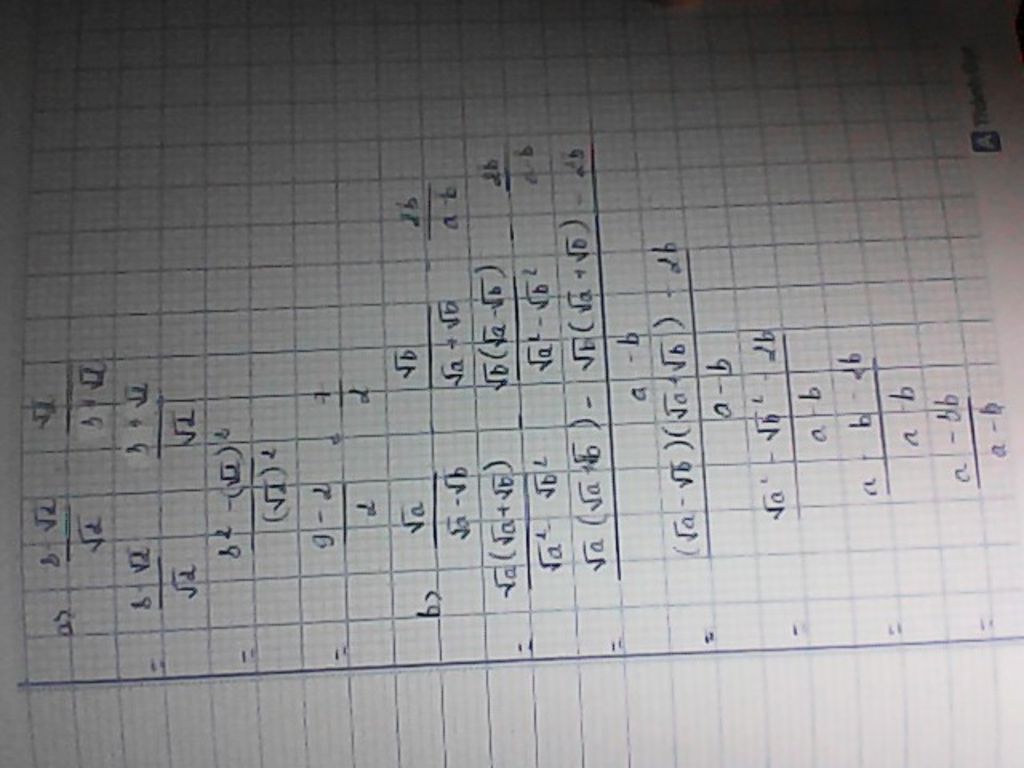 a) (3 - √2)/√2 : √2/(3 + √2)
= (3 - √2)/√2 · (3 + √2)/√2
= (3² - (√2)²)/(√2)²
= (9 - 2)/2 = 7/2
b) √a/(√a - √b) - √b/(√a + √b) - 2b/(a - b)
= √a(√a + √b)/(√a² - √b²) - √b(√a - √b)/(√a² - √b²) - 2b/(a - b)
= (√a(√a + √b) - √b(√a + √b) - 2b)/(a - b)
= ((√a - √b)(√a + √b) - 2b)/(a - b)
= (√a² - √b² - 2b)/(a - b)
= (a - b - 2b)/(a - b)
= (a - 3b)/(a - b)